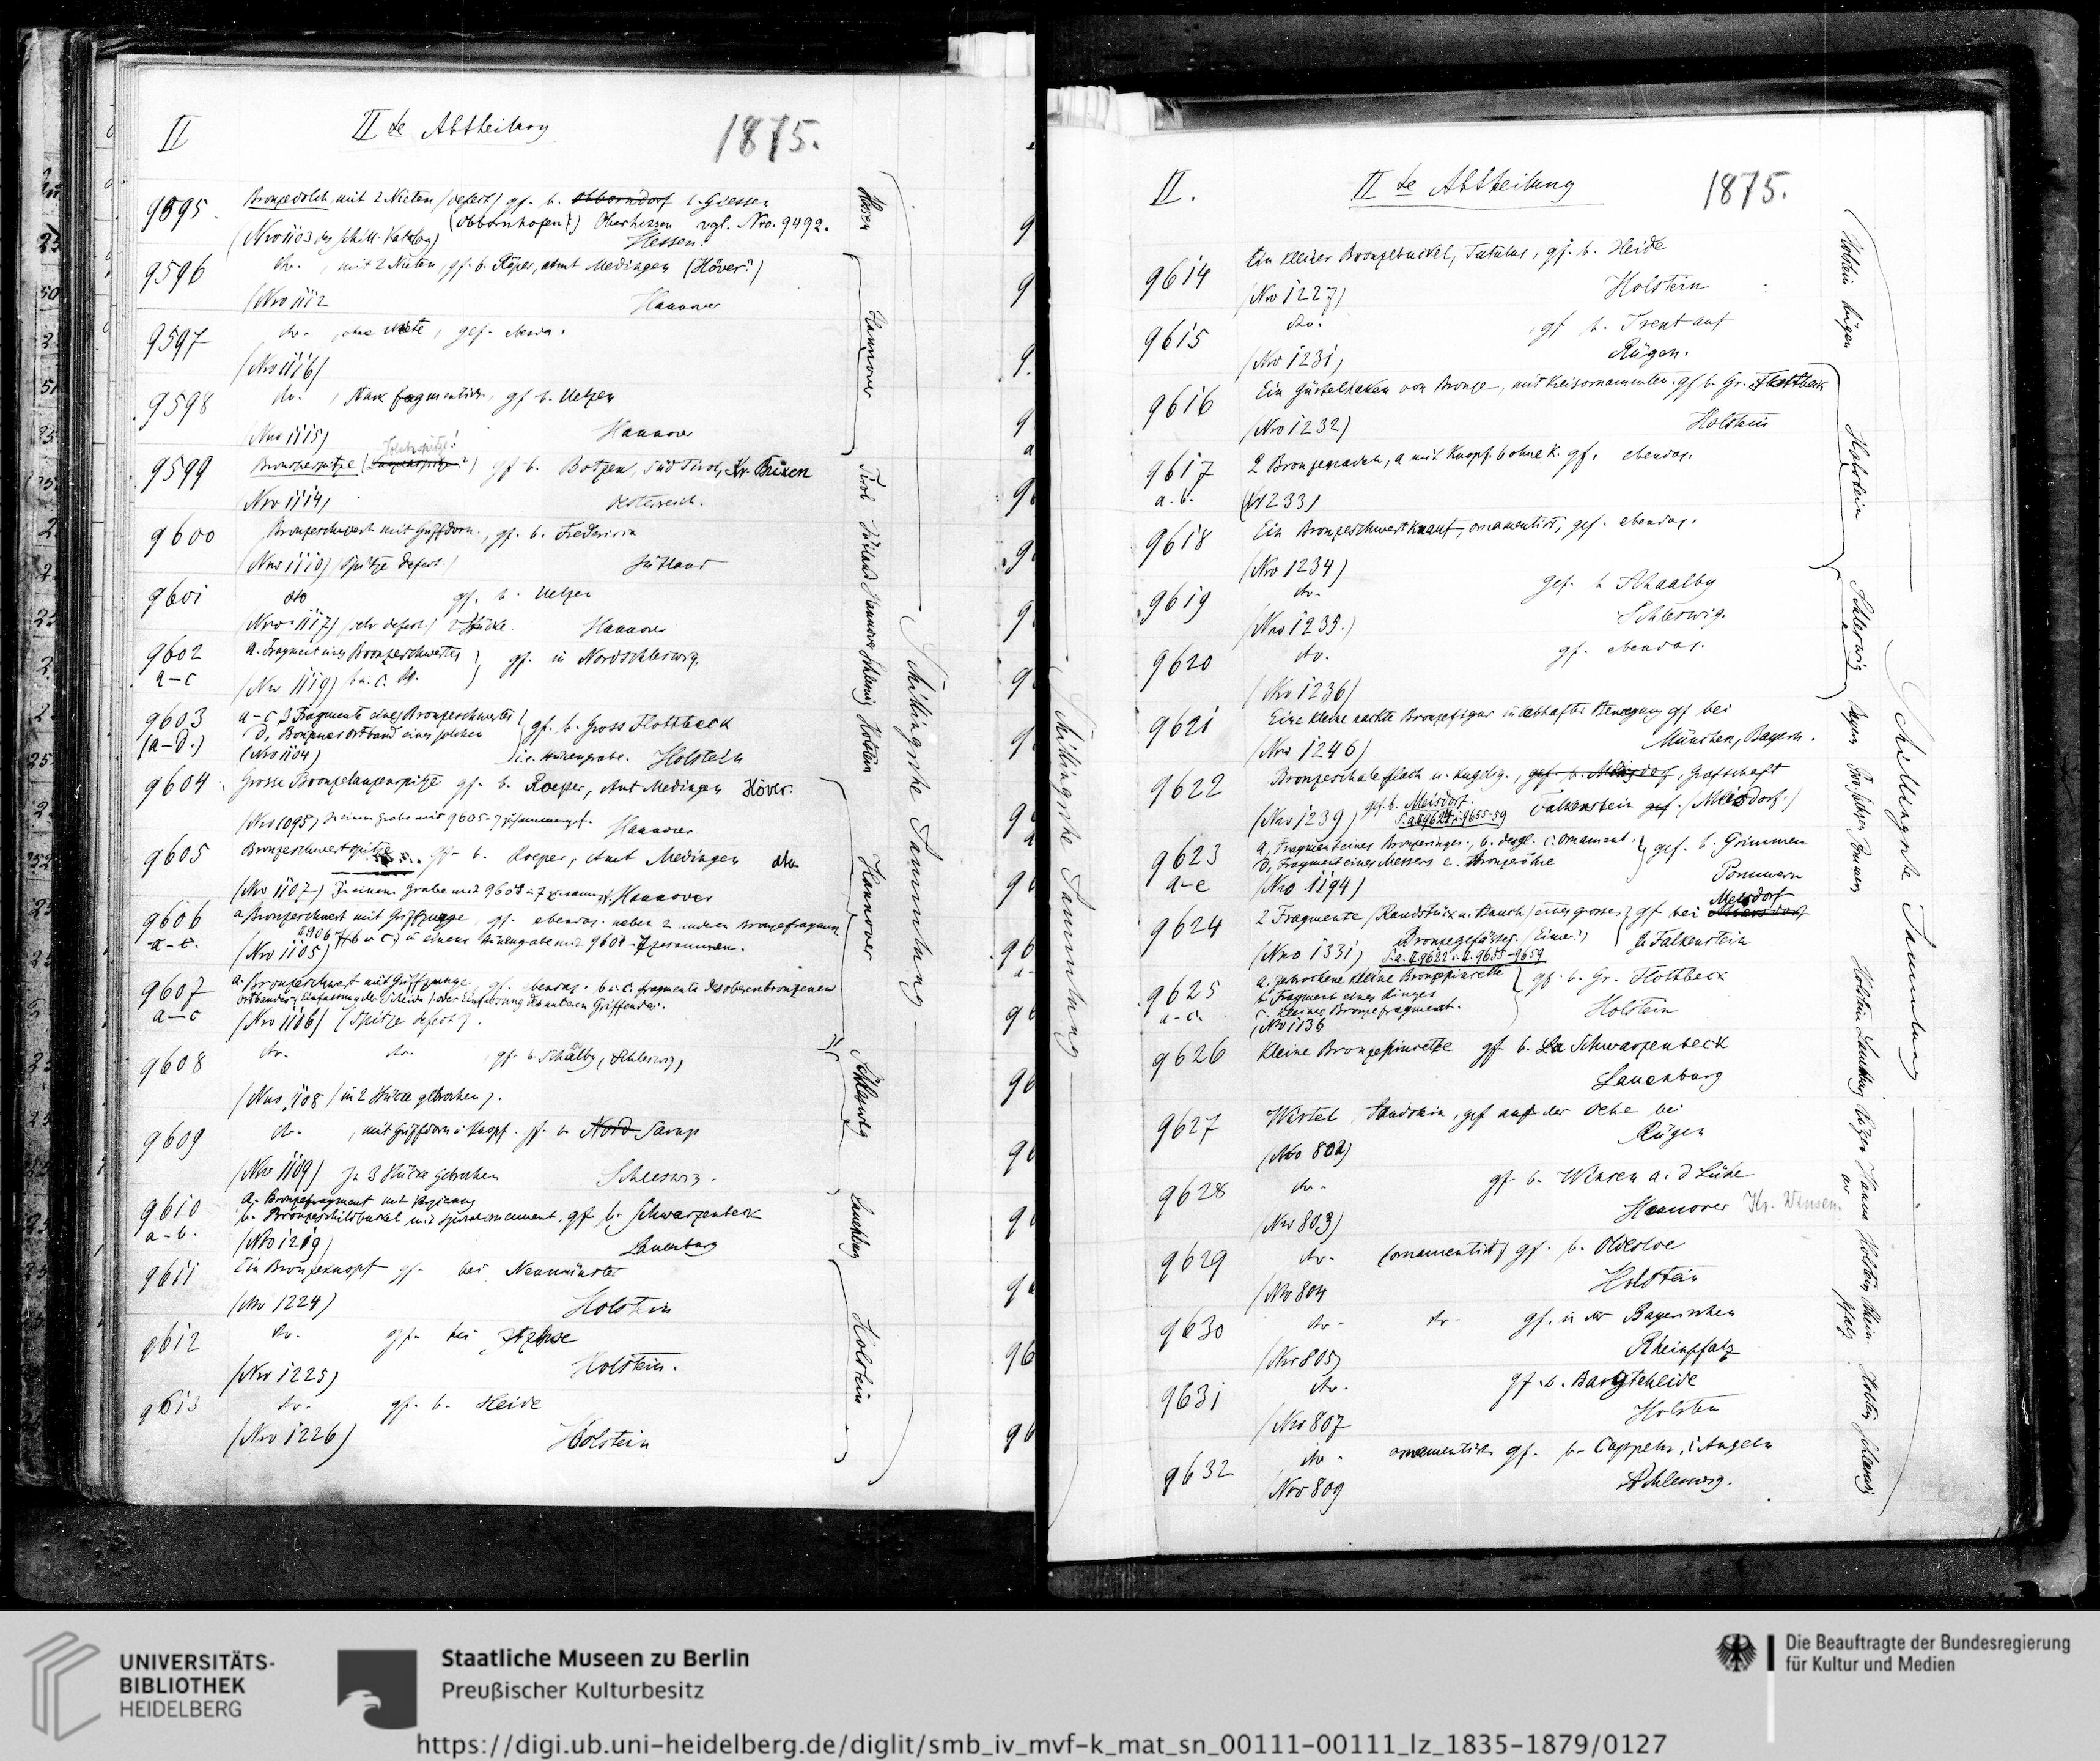 II
IIte Abtheilung
1875.
9595.
Bronzedolch, mit 2 Nieten (defect) gf. b. Obborndorf b. Giessen
(Nro 1103 des Schill. Katalog) (Obbornhofen?) Oberhessen vgl. Nro. 9492.
Hessen.
9596
do. , mit 2 Nieten, gf. b. Röper, Amt Medingen (Höver?)
(Nro 1112
Hannover
9597
do. , ohne Niete, gef. ebenda.
(Nro 1116)
9598
do. , stark fragmentirt, gf. b. Uelzen
(Nro 1115)
Hannover
9599
Bronzespitze (Lanzenspitze?) gf. b. Botzen, Süd Tirol, Kr. Brixen
Dolchspitze!
(Nro 1114)
Oesterreich.
9600
Bronzeschwert mit Griffdorn, gf. b. Fredericia
(Nro 1110) (Spitze defect)
Jütland
9601
do
gf. b. Uelzen
(Nro 1117) (sehr defect) 2 Stücke.
Hannover
9602
a-c
a. Fragment eines Bronzeschwertes
gf. in Nordschleswig.
(Nro 1119) b u. c. dg.
9603
(a-D.)
a-c 3 Fragmente eines Bronzeschwertes
D, Bronzenes Ortband eines solchen
gf. b. Gross Flottbeck
(Nro 1104)
i.e. Hünengrabe. Holstein
9604
Grosse Bronzelanzenspitze gf. b. Roeper, Amt Medingen Höver.
(Nro 1095) In einem Grabe mit 9605-7 zusammen gf.
Hannover
9605
Bronzeschwertspitze gf. b. Roeper, Amt Medingen
(Nro 1107) In einem Grabe mit 9604 u 7 zusamm. gf. Hannover
9606
a-c.
a Bronzeschwert mit Griffzunge, gf. ebendas. neben 2 anderen Bronzefragmen
(Nro 1105) (b u c) in einem Hünengrabe mit 9604-7 zusammen.
9607
a-c
a. Bronzeschwert mit Griffzunge, gf. ebendas. b u. c. Fragmente des oberen bronzenen
Ortbandes, Einfassung der Scheide, oder Einfassung des unteren Griffendes.
(Nro 1106) (Spitze defect).
9608
do. do. gf. b. Schalby, (Schleswig)
(Nro. 1108 (in 2 Stücke gebrochen).
9609
do. , mit Griffdorn u Knopf. gf. b. Nord-Sarup
(Nro 1109) In 3 Stücke gebrochen
Schleswig.
9610
a-b.
a. Bronzefragment mit Verzierung
b. Bronzeschildbuckel mit Spiralornament, gf. b. Schwarzenbeck
(Nro 1219)
Lauenburg
9611
Ein Bronzeknopf gf. bei Neumünster
(Nro 1224)
Holstein
9612
do. gf. bei Itzehoe
(Nro 1225)
Holstein.
9613
do. gf. b. Heide
(Nro 1226)
Holstein
Hessen
Hannover
Tirol
Jütland
Hannover
Schleswig
Holstein
Hannover
Schleswig
Lauenburg
Holstein
Schillingsche Sammlung
II.
IIte Abtheilung
1875.
9614
Ein kleiner Bronzebuckel, Tutulus, gf. b. Heide
(Nro 1227)
Holstein
9615
do. , gf b. Trent auf
(Nro 1231)
Rügen.
9616
Ein Gürtelhaken von Bronze, mit Kreisornamenten. gf b. Gr. Flottbeck
(Nro 1232)
Holstein
9617
a.b.
2 Bronzenadeln, a mit Knopf. b ohne K. gf. ebendas.
(1233)
9618
Ein Bronzeschwertknauf, ornamentirt, gef. ebendas.
(Nro 1234)
9619
do. gef. b Schaalby
(Nro 1235.)
Schleswig.
9620
do. gf. ebendas.
(Nro 1236)
9621
Eine kleine nackte Bronzefigur in lebhafter Bewegung gf bei
(Nro 1246)
München, Bayern.
9622
Bronzeschale flach u. kugelig, gef. b. Meisdorf, Grafschaft
(Nro 1239) gef. b. Meisdorf. Falkenstein gef. (Meisdorf.)
S. a. 9624 u. 9655-59
9623
a-e
a, Fragment eines Bronzeringes, b. desgl. c. ornament.
D, Fragment eines Messers e. Bronzeöhre
gef. b. Grimmen
(Nro 1194)
Pommern
9624
2 Fragmente (Randstück u. Bauch) eines grossen gf bei Meisdorf
Bronzegefässes. (Eimer?)
b. Falkenstein
(Nro 1331) S. a. II 9622 u. II. 9655-9659
9625
a-c.
a. zerbrochene kleine Bronzepincette
b. Fragment eines Ringes
c. kleines Bronzefragment.
gf. b. Gr. Flottbeck
Holstein
(Nro 1136
9626
Kleine Bronzepincette gf b. Schwarzenbeck
Lauenburg
9627
Wirtel Sandstein, gef auf der Oehe bei
Rügen
(Nro 802)
9628
do. gf b. Winsen a. d Luhe
(Nro 803)
Hannover Kr. Winsen.
9629
do. (ornamentirt) gf. b. Oldesloe
(Nro 804
Holstein
9630
do. do. gf. in der Bayerischen
(Nro 805)
Rheinpfalz
9631
do. gf. b. Bargteheide
(Nro 807
Holstein
9632
do. ornamentirt gf. b. Cappeln, i Angeln
(Nro 809
Schleswig.
Holstein
Rügen
Holstein
Schleswig
Bayern
Pommern
Holstein
Lauenburg
Rügen
Hannover
Holstein
Rhein-
pfalz
Holstein
Schleswig
Schillingsche Sammlung
Schillingsche Sammlung
UNIVERSITÄTS-
BIBLIOTHEK
HEIDELBERG
Staatliche Museen zu Berlin
Preußischer Kulturbesitz
Die Beauftragte der Bundesregierung
für Kultur und Medien
https://digi.ub.uni-heidelberg.de/diglit/smb_iv_mvf-k_mat_sn_00111-00111_lz_1835-1879/0127